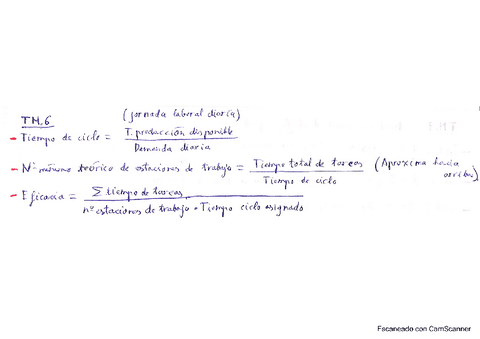 TM.6
(jornada laboral diaria)
- Tiempo de ciclo = T. producción disponible / Demanda diaria
- Nº mínimo teórico de estaciones de trabajo = Tiempo total de tareas / Tiempo de ciclo (Aproxima hacia arriba)
- Eficacia = Σ tiempo de tareas / nº estaciones de trabajo · Tiempo ciclo asignado
Escaneado con CamScanner